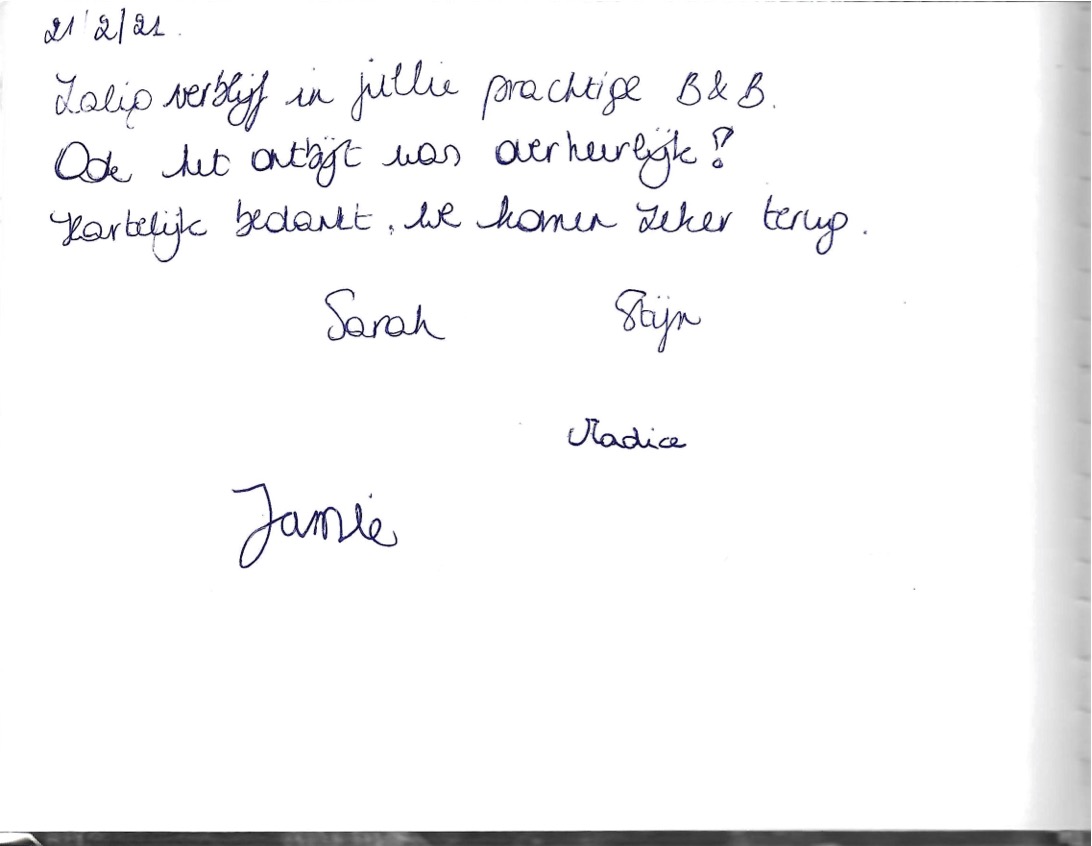 21/2/21.
Zalig verblijf in jullie prachtige B&B.
Ook het ontbijt was overheerlijk!
Hartelijk bedankt, we komen zeker terug.
Sarah Stijn
Jamie